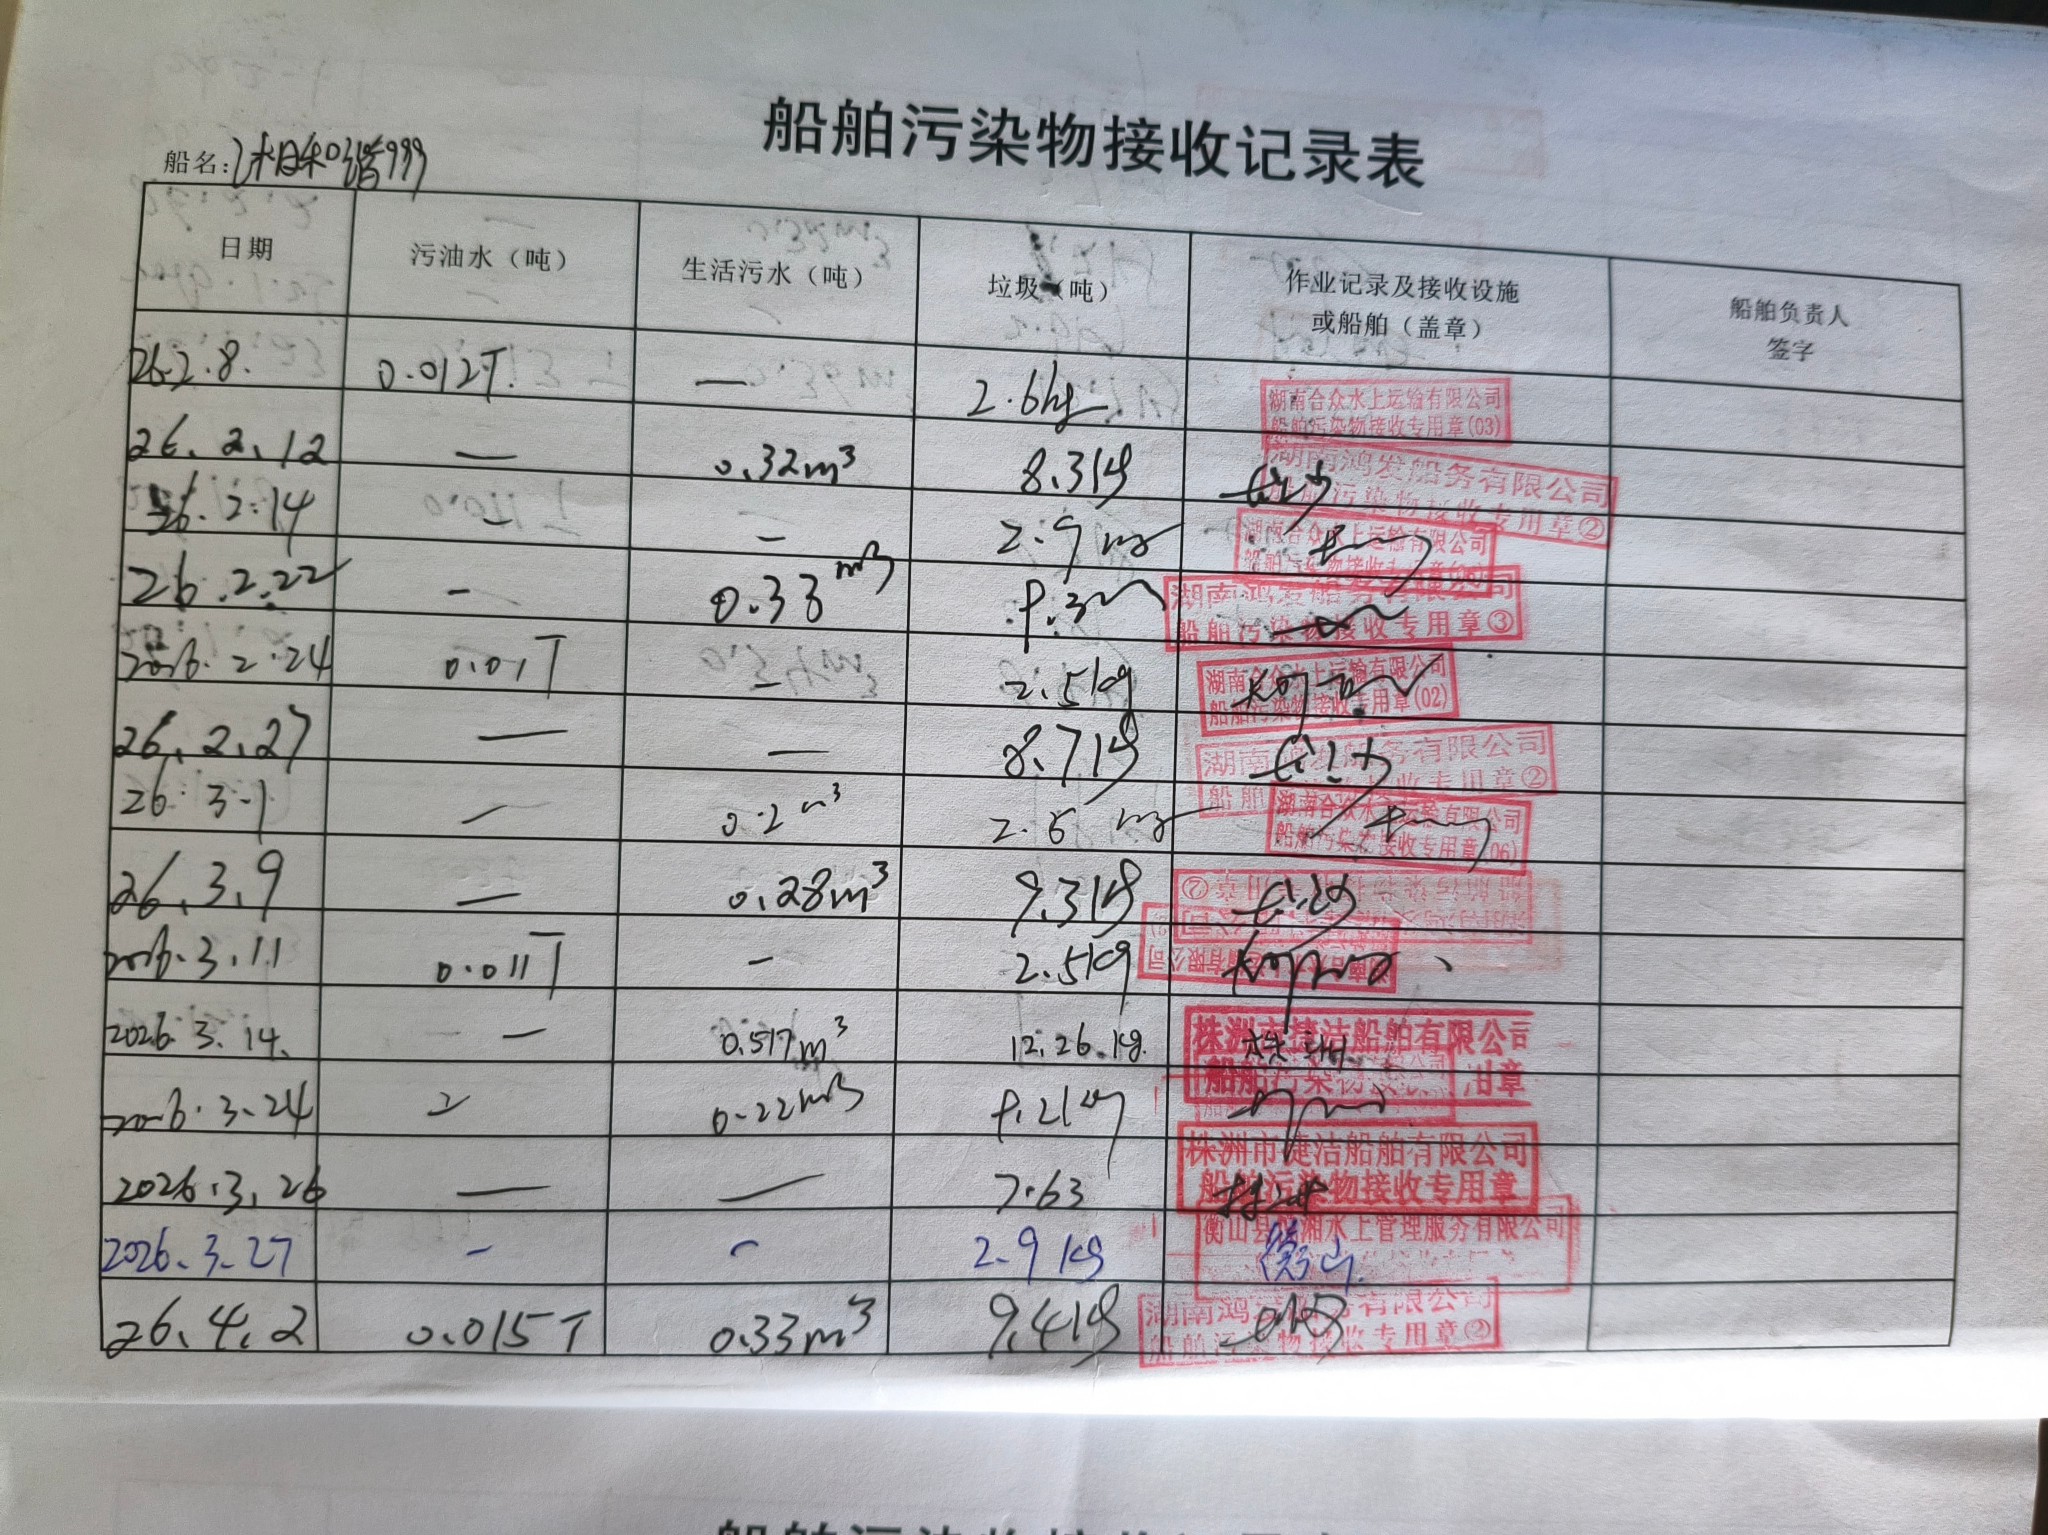 船舶污染物接收记录表
船名:湘和谐999
日期 污油水（吨） 生活污水（吨） 垃圾（吨） 作业记录及接收设施或船舶（盖章） 船舶负责人签字
26.2.8. 0.012T. — 2.6kg 湖南合众水上运输有限公司 船舶污染物接收专用章(03)
26.2.12 — 0.32m³ 8.3kg 长沙 湖南鸿发船务有限公司 船舶污染物接收专用章②
26.2.14 - — 2.9kg 湖南合众水上运输有限公司 船舶污染物接收专用章
26.2.22 - 0.33m³ 9.3kg 湖南鸿发船务有限公司 船舶污染物接收专用章③
2026.2.24 0.01T - 2.5kg 湖南合众水上运输有限公司 船舶污染物接收专用章(02)
26.2.27 — — 8.7kg 长沙 湖南鸿发船务有限公司 船舶污染物接收专用章②
26.3.1 — 0.2m³ 2.6kg 湖南合众水上运输有限公司 船舶污染物接收专用章(06)
26.3.9 — 0.28m³ 9.3kg 长沙
2026.3.11 0.011T - 2.5kg
2026.3.14. — 0.517m³ 12.26.kg. 株洲 株洲市捷洁船舶有限公司 船舶污染物接收专用章
2026.3.24 0.22m³ 9.2kg
2026.3.26 — — 7.63 株洲 株洲市捷洁船舶有限公司 船舶污染物接收专用章
2026.3.27 - - 2.9kg 衡山 衡山县 湘水上管理服务有限公司
26.4.2 0.015T 0.33m³ 9.4kg 湖南鸿发船务有限公司 船舶污染物接收专用章②